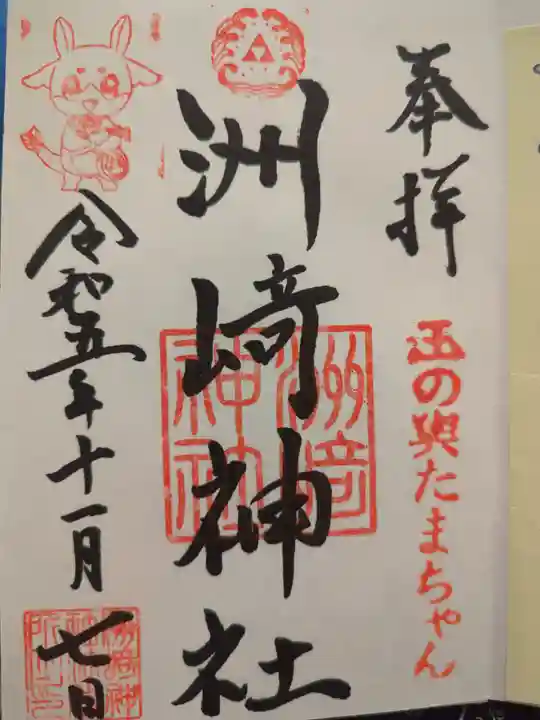 奉拝
玉の輿たまちゃん
洲崎神社
洲崎神社
令和五年十一月七日